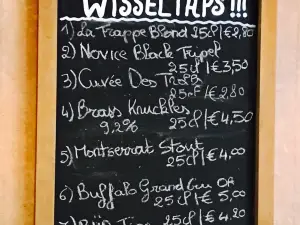 WISSELTAPS!!!
1) La Trappe Blond 25cl/€2,80
2) Novice Black Tripel
25cl/€3,50
3) Cuvée Des Trolls
25cl/€2,80
4) Brass Knuckles
9.2% 25cl/€4,50
5) Montserrat Stout
25cl/€4,00
6) Buffalo Grand Cru OF
25cl/€5,00
25cl/€4.20